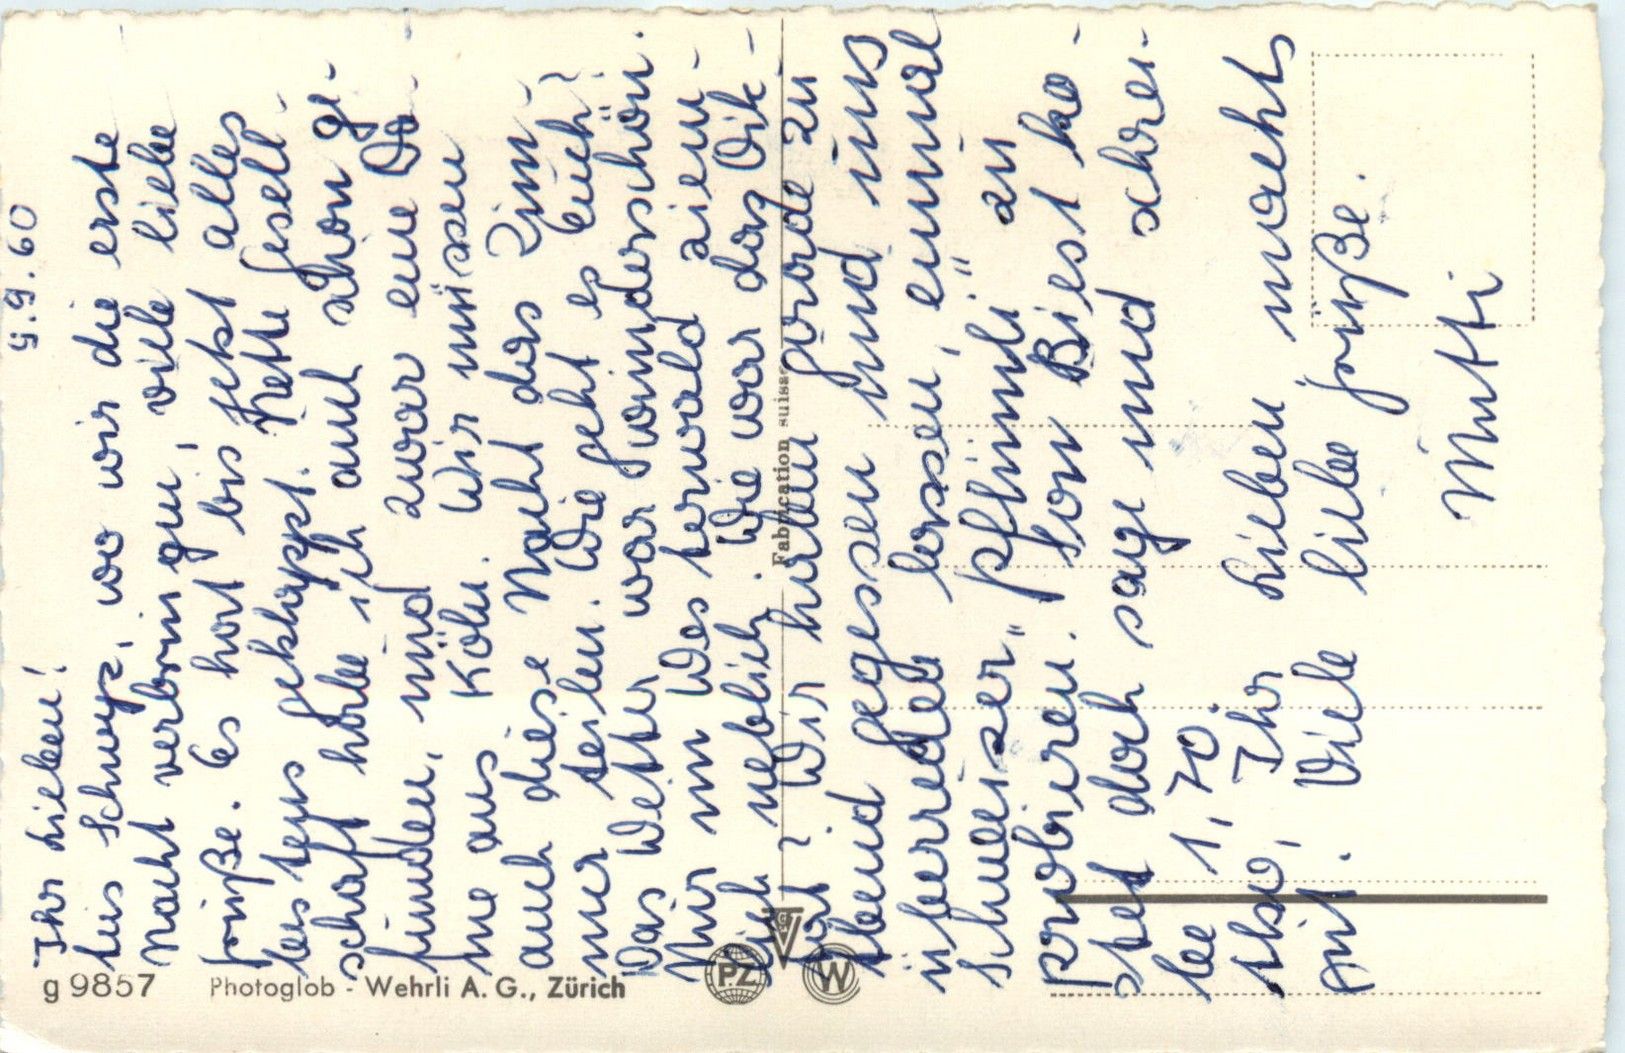 5.9.60
Ihr Lieben!
Aus Schwyz, wo wir die erste
Nacht verbringen, viele liebe
Grüße. Es hat bis jetzt alles
bestens geklappt. Nette Gesell-
schaft habe ich auch schon ge-
funden, und zwar eine Da-
me aus Köln. Wir müssen
auch diese Nacht das Zim-
mer teilen. Wie geht es Euch?
Das Wetter war wunderschön.
Nur im Westerwald ziem-
lich neblich. Wie war das Dik-
tat? Wir haben gerade zu
Abend gegessen und uns
überreden lassen, einmal
Schweizer „Pflümli" zu
probieren. Son Biest ko-
stet doch sage und schrei-
be 1,70.
Also, Ihr Lieben machts
gut. Viele liebe Grüße.
Mutti
g 9857
Photoglob - Wehrli A. G., Zürich
Fabrication suisse
PZ
W